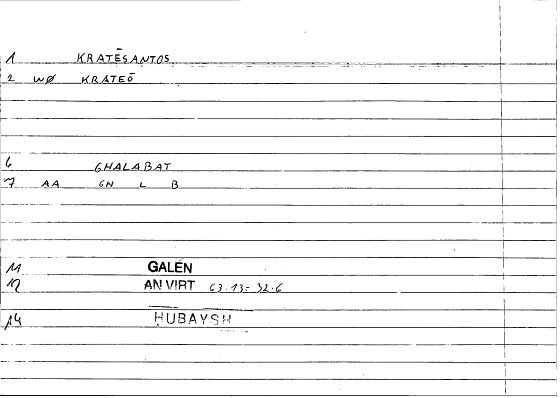 1 KRATĒSANTOS
2 WØ KRATEŌ
6 GHALABAT
7 AA GH L B
11 GALÉN
12 AN VIRT 63.13-32.6
14 HUBAYSH